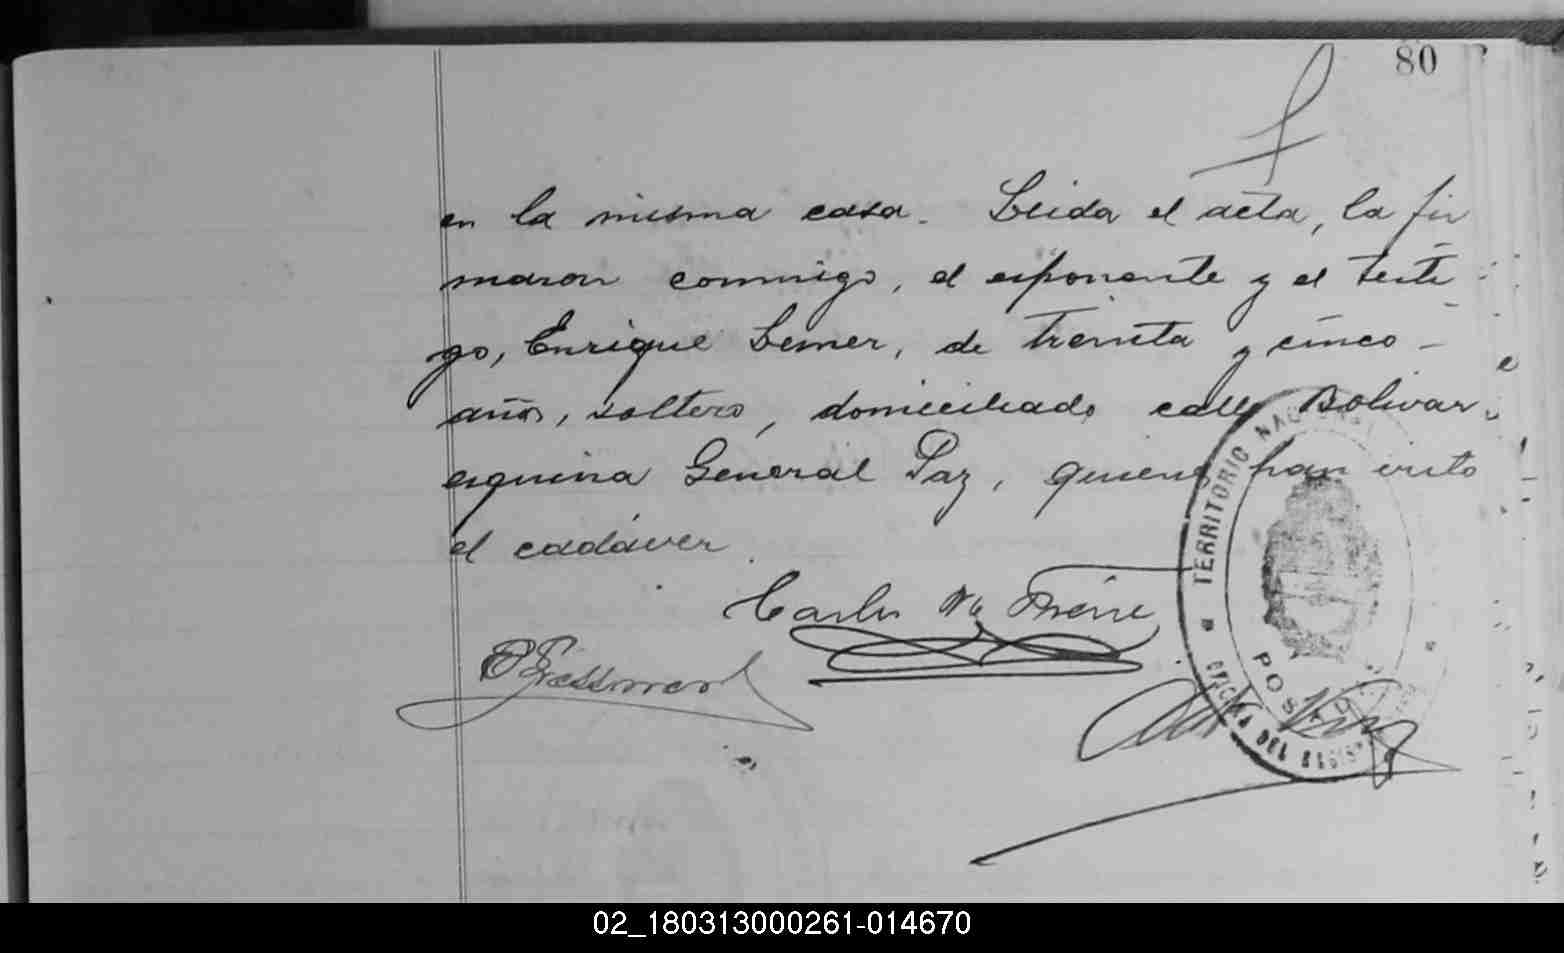 80
en la misma casa. Leida el acta, la fir
maron conmigo, el esponente y el testi
go, Enrique Lemer, de treinta y cinco –
años, soltero, domiciliado calle Bolivar
esquina General Paz, quienes han visto
el cadáver.
Carlos
TERRITORIO NACIONAL
POSADAS
OFICINA DEL REGISTRO
02_180313000261-014670